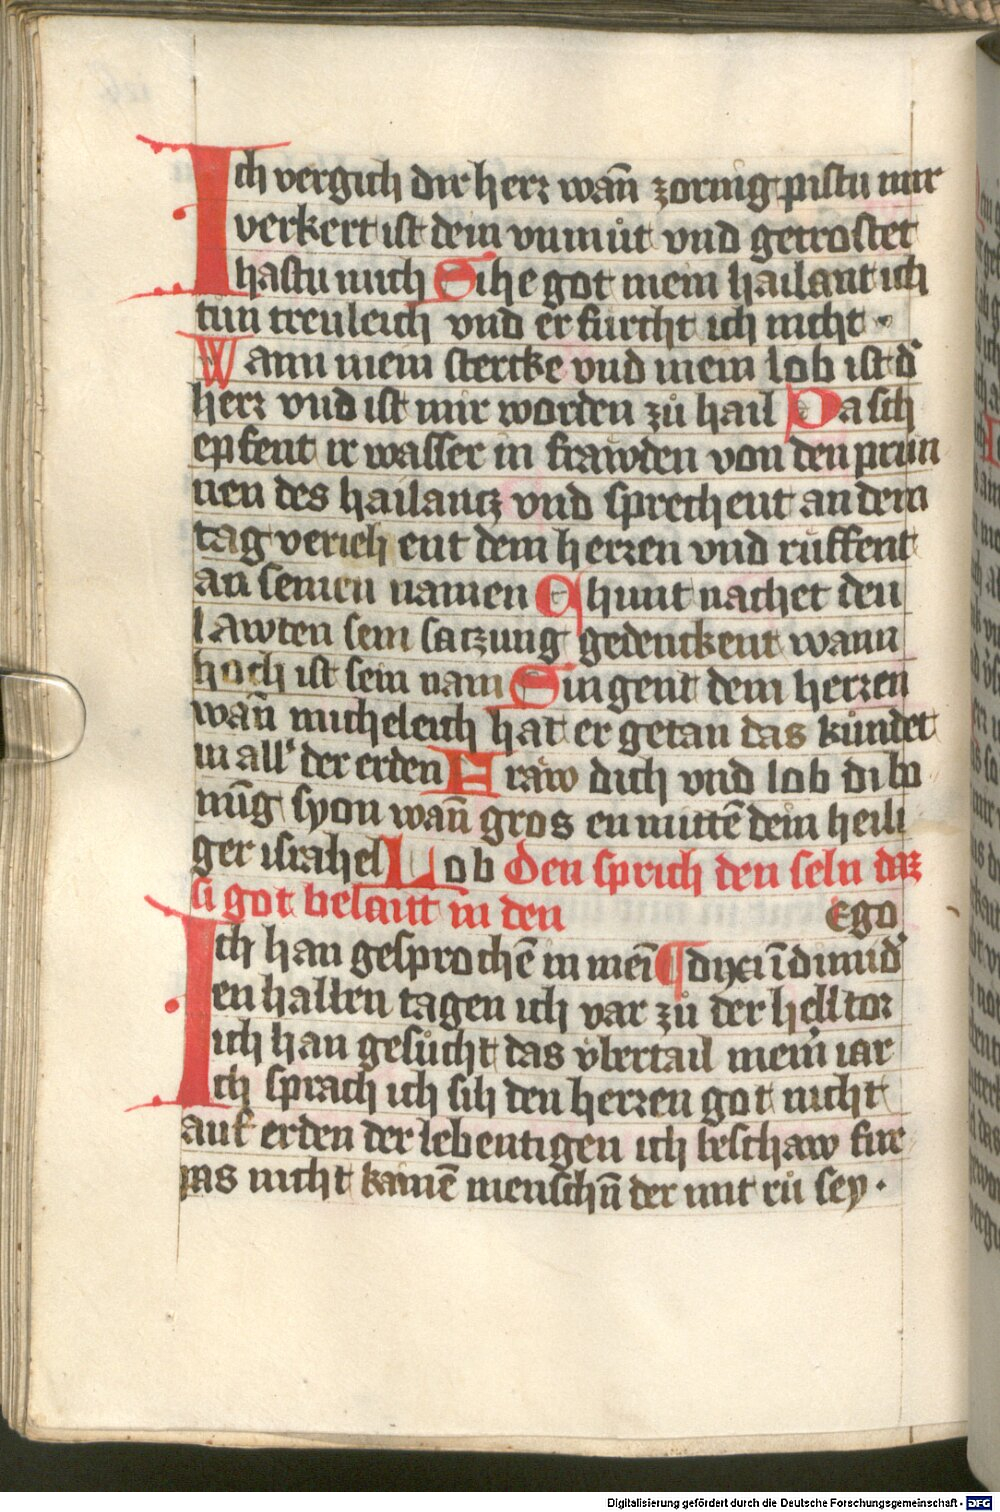 Ich vergich dir herr wan̄ zornig pistu mir
verkert ist dein vnmůt vnd getrostet
hastu mich Sihe got mein hailant ich
tůn treuleich vnd er fürcht ich nicht
Wann mein stercke vnd mein lob ist d᷑
herr vnd ist mir worden zů hail Da sch
epfent ir wasser in fräwden von den prün
nen des hailantz vnd sprechent an dem
tag veriehent dem herren vnd rüffent
an seinen namen Chunt nachet den
lawten sein satzung gedenckent wann
hoch ist sein nam Singent dem herren
wan̄ micheleich hat er getan das kündet
in all᷑ der erden Fräw dich vnd lob di bo
nūg syon wan̄ gros en mittē dein heili
ger israhel Lob Den sprich den seln daz
si got belaitt in den
Ego
Ich han gesprochē in mei᷑n dixi ī dimid᷑
en halben tagen ich var zů der hell tor
ich han gesůcht das vbertail meiner iar
Ich sprach ich sih den herren got nicht
auf erden der lebentigen ich beschaw für
pas nicht kainē menschn̄ der mit rů sey ·
Digitalisierung gefördert durch die Deutsche Forschungsgemeinschaft - DFG